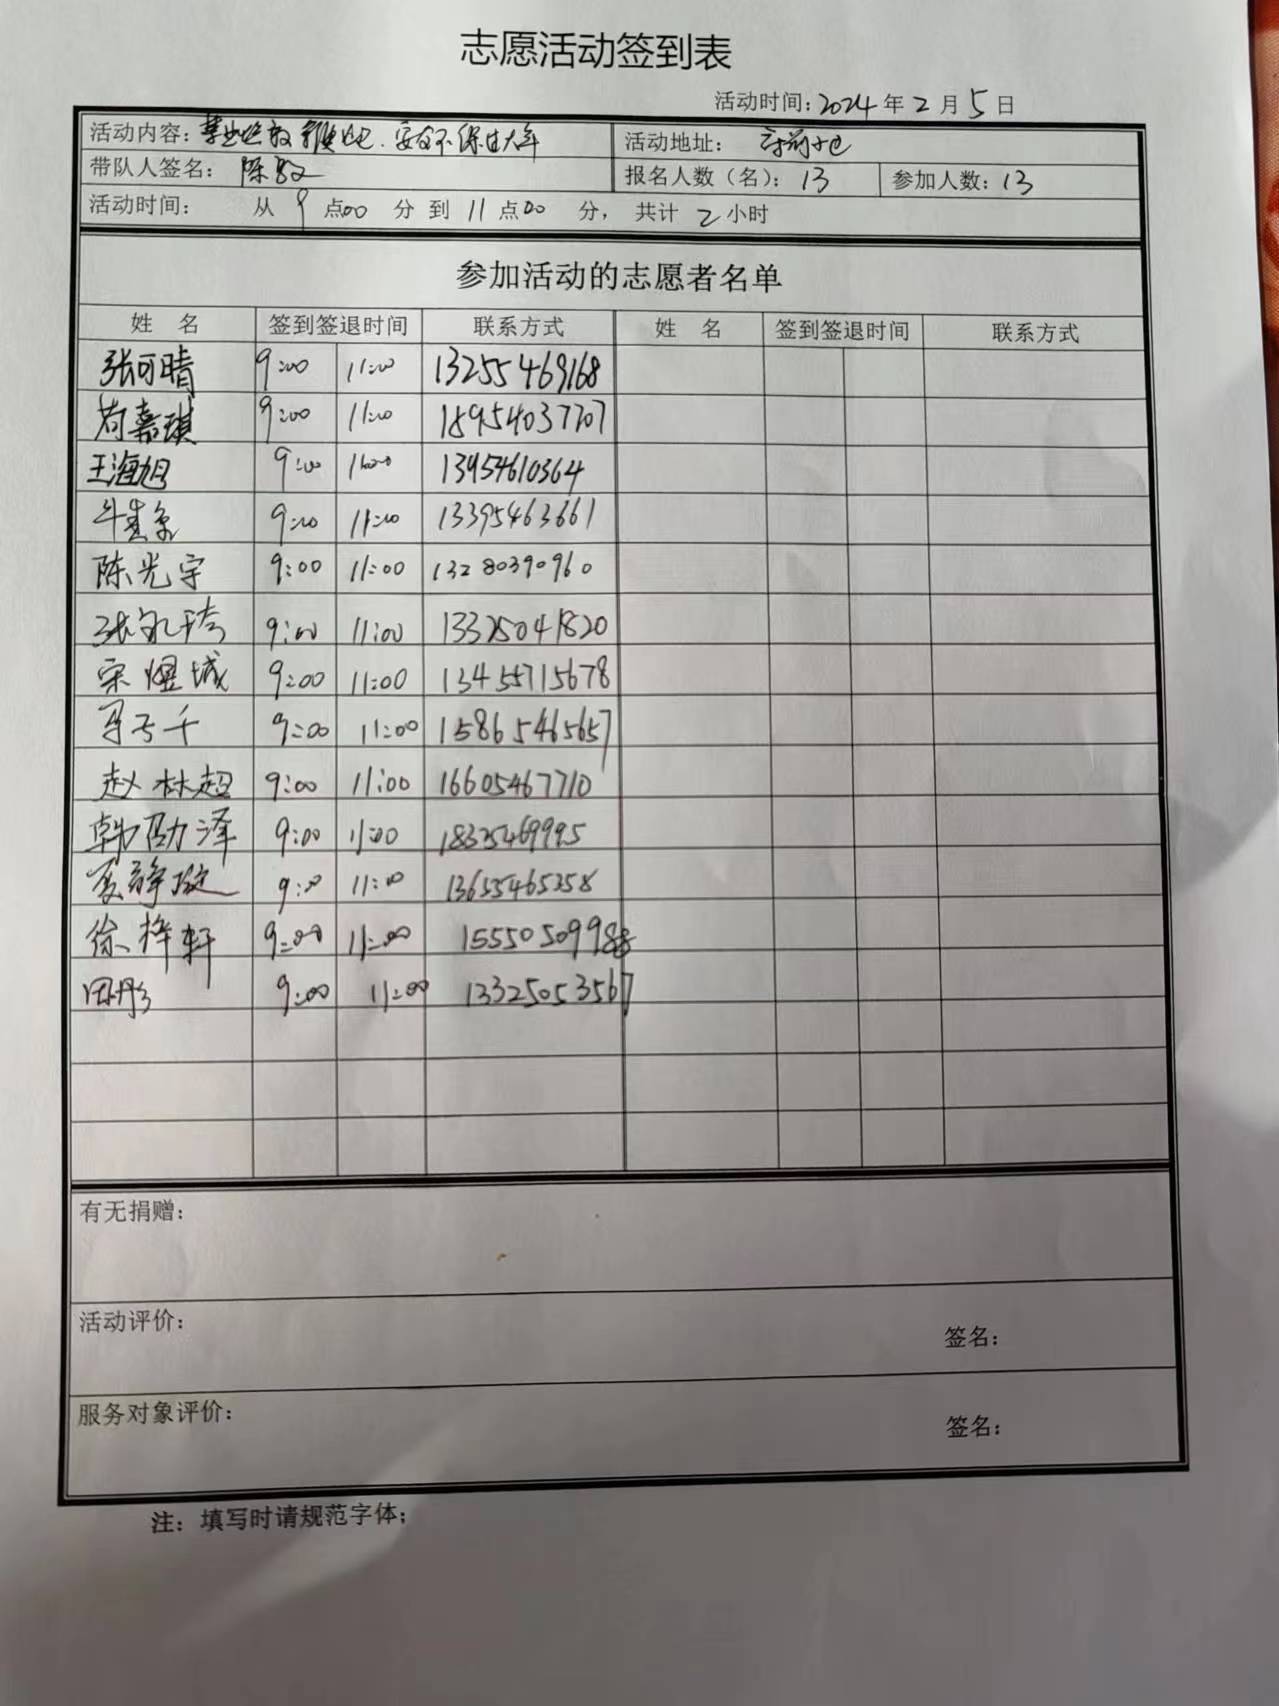 志愿活动签到表
活动时间：2024年2月5日
活动内容：
活动地址：
带队人签名：陈
报名人数（名）：13
参加人数：13
活动时间： 从 9 点00 分 到 11 点00 分， 共计 2 小时
参加活动的志愿者名单
姓 名 签到签退时间 联系方式 姓 名 签到签退时间 联系方式
张可晴 9:00 11:00 13255469168
苟嘉琪 9:00 11:00 18954037707
王海旭 9:00 11:00 13954610364
9:00 11:00 13395463661
陈光宇 9:00 11:00 13280390960
9:00 11:00 13325041820
宋煜城 9:00 11:00 13455715678
9:00 11:00 15865465657
赵林超 9:00 11:00 16605467710
韩励泽 9:00 11:00 18325469995
夏静 9:00 11:00 13655465358
徐梓轩 9:00 11:00 15550509988
田彤 9:00 11:00 13325053567
有无捐赠：
活动评价：
签名：
服务对象评价：
签名：
注：填写时请规范字体；